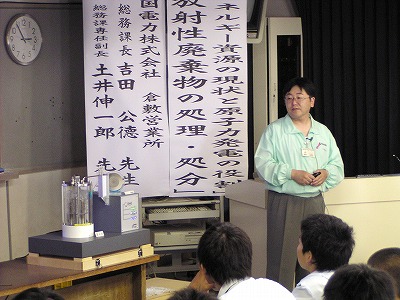 ネルギー資源の現状と原子力発電の役割
放射性廃棄物の処理・処分」
国電力株式会社 倉敷営業所
総務課長 吉田 公徳 先生
総務課専任副長 土井伸一郎 先